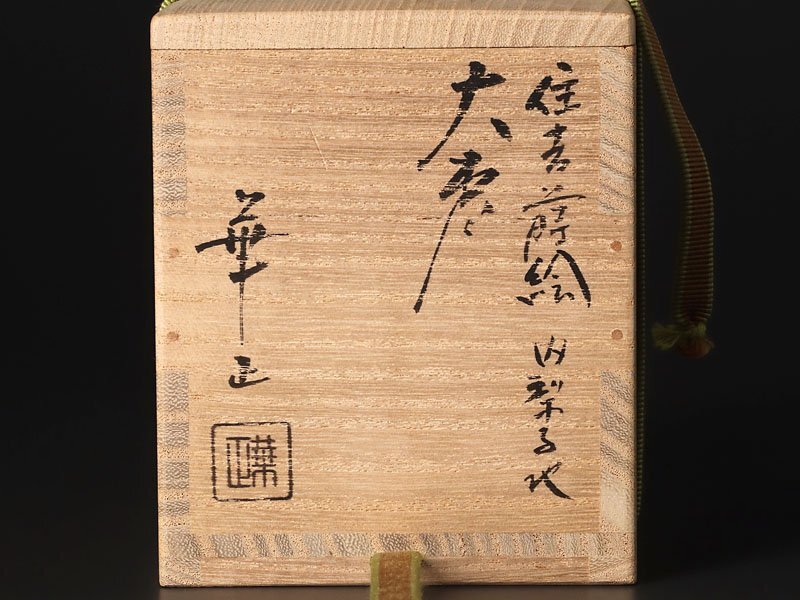 住吉蒔絵 内梨子地
大棗
華正